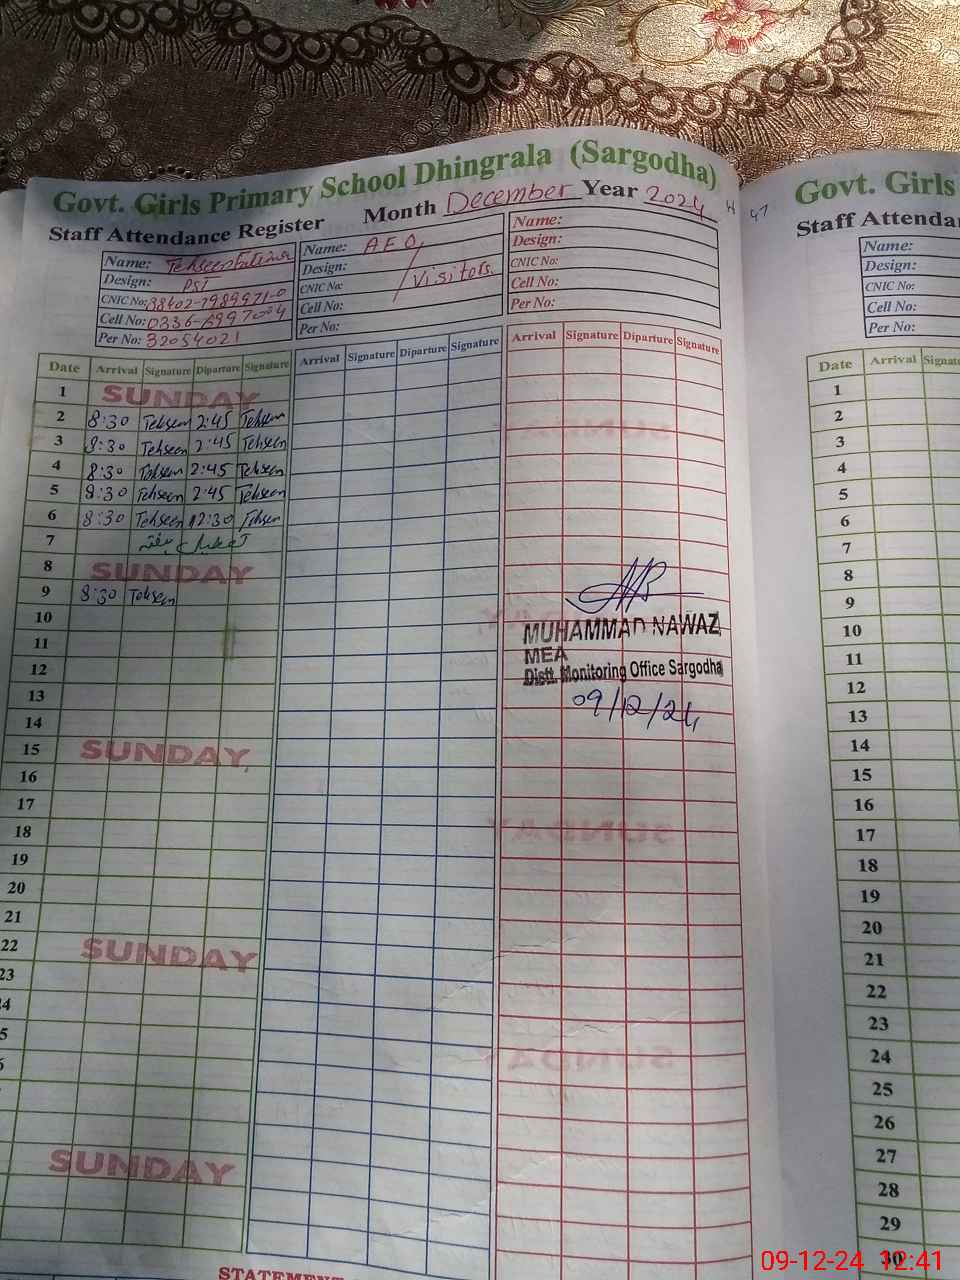 Govt. Girls Primary School Dhingrala (Sargodha)
Staff Attendance Register Month December Year 2024
47
Name: Tehseen Fatima
Design: PST
CNIC No:
Cell No:
Per No: 32054021
Name: AEO,
Design: / Visitors.
CNIC No:
Cell No:
Per No:
Name:
Design:
CNIC No:
Cell No:
Per No:
Date Arrival Signature Diparture Signature Arrival Signature Diparture Signature Arrival Signature Diparture Signature
1 SUNDAY
2 8:30 Tehseen 2:45 Tehseen
3 8:30 Tehseen 2:45 Tehseen
4 8:30 Tehseen 2:45 Tehseen
5 8:30 Tehseen 2:45 Tehseen
6 8:30 Tehseen 12:30 Tehseen
7 تعطیل ہفتہ
8 SUNDAY
9 8:30 Tehseen
10
11
12
13
14
15 SUNDAY
16
17
18
19
20
21
22 SUNDAY
23
SUNDAY
MUHAMMAD NAWAZ
MEA
Distt. Monitoring Office Sargodha
09/12/24
STATEMENT
Govt. Girls
Staff Attendan
Name:
Design:
CNIC No:
Cell No:
Per No:
Date Arrival Signatu
1
2
3
4
5
6
7
8
9
10
11
12
13
14
15
16
17
18
19
20
21
22
23
24
25
26
27
28
29
30
09-12-24 12:41